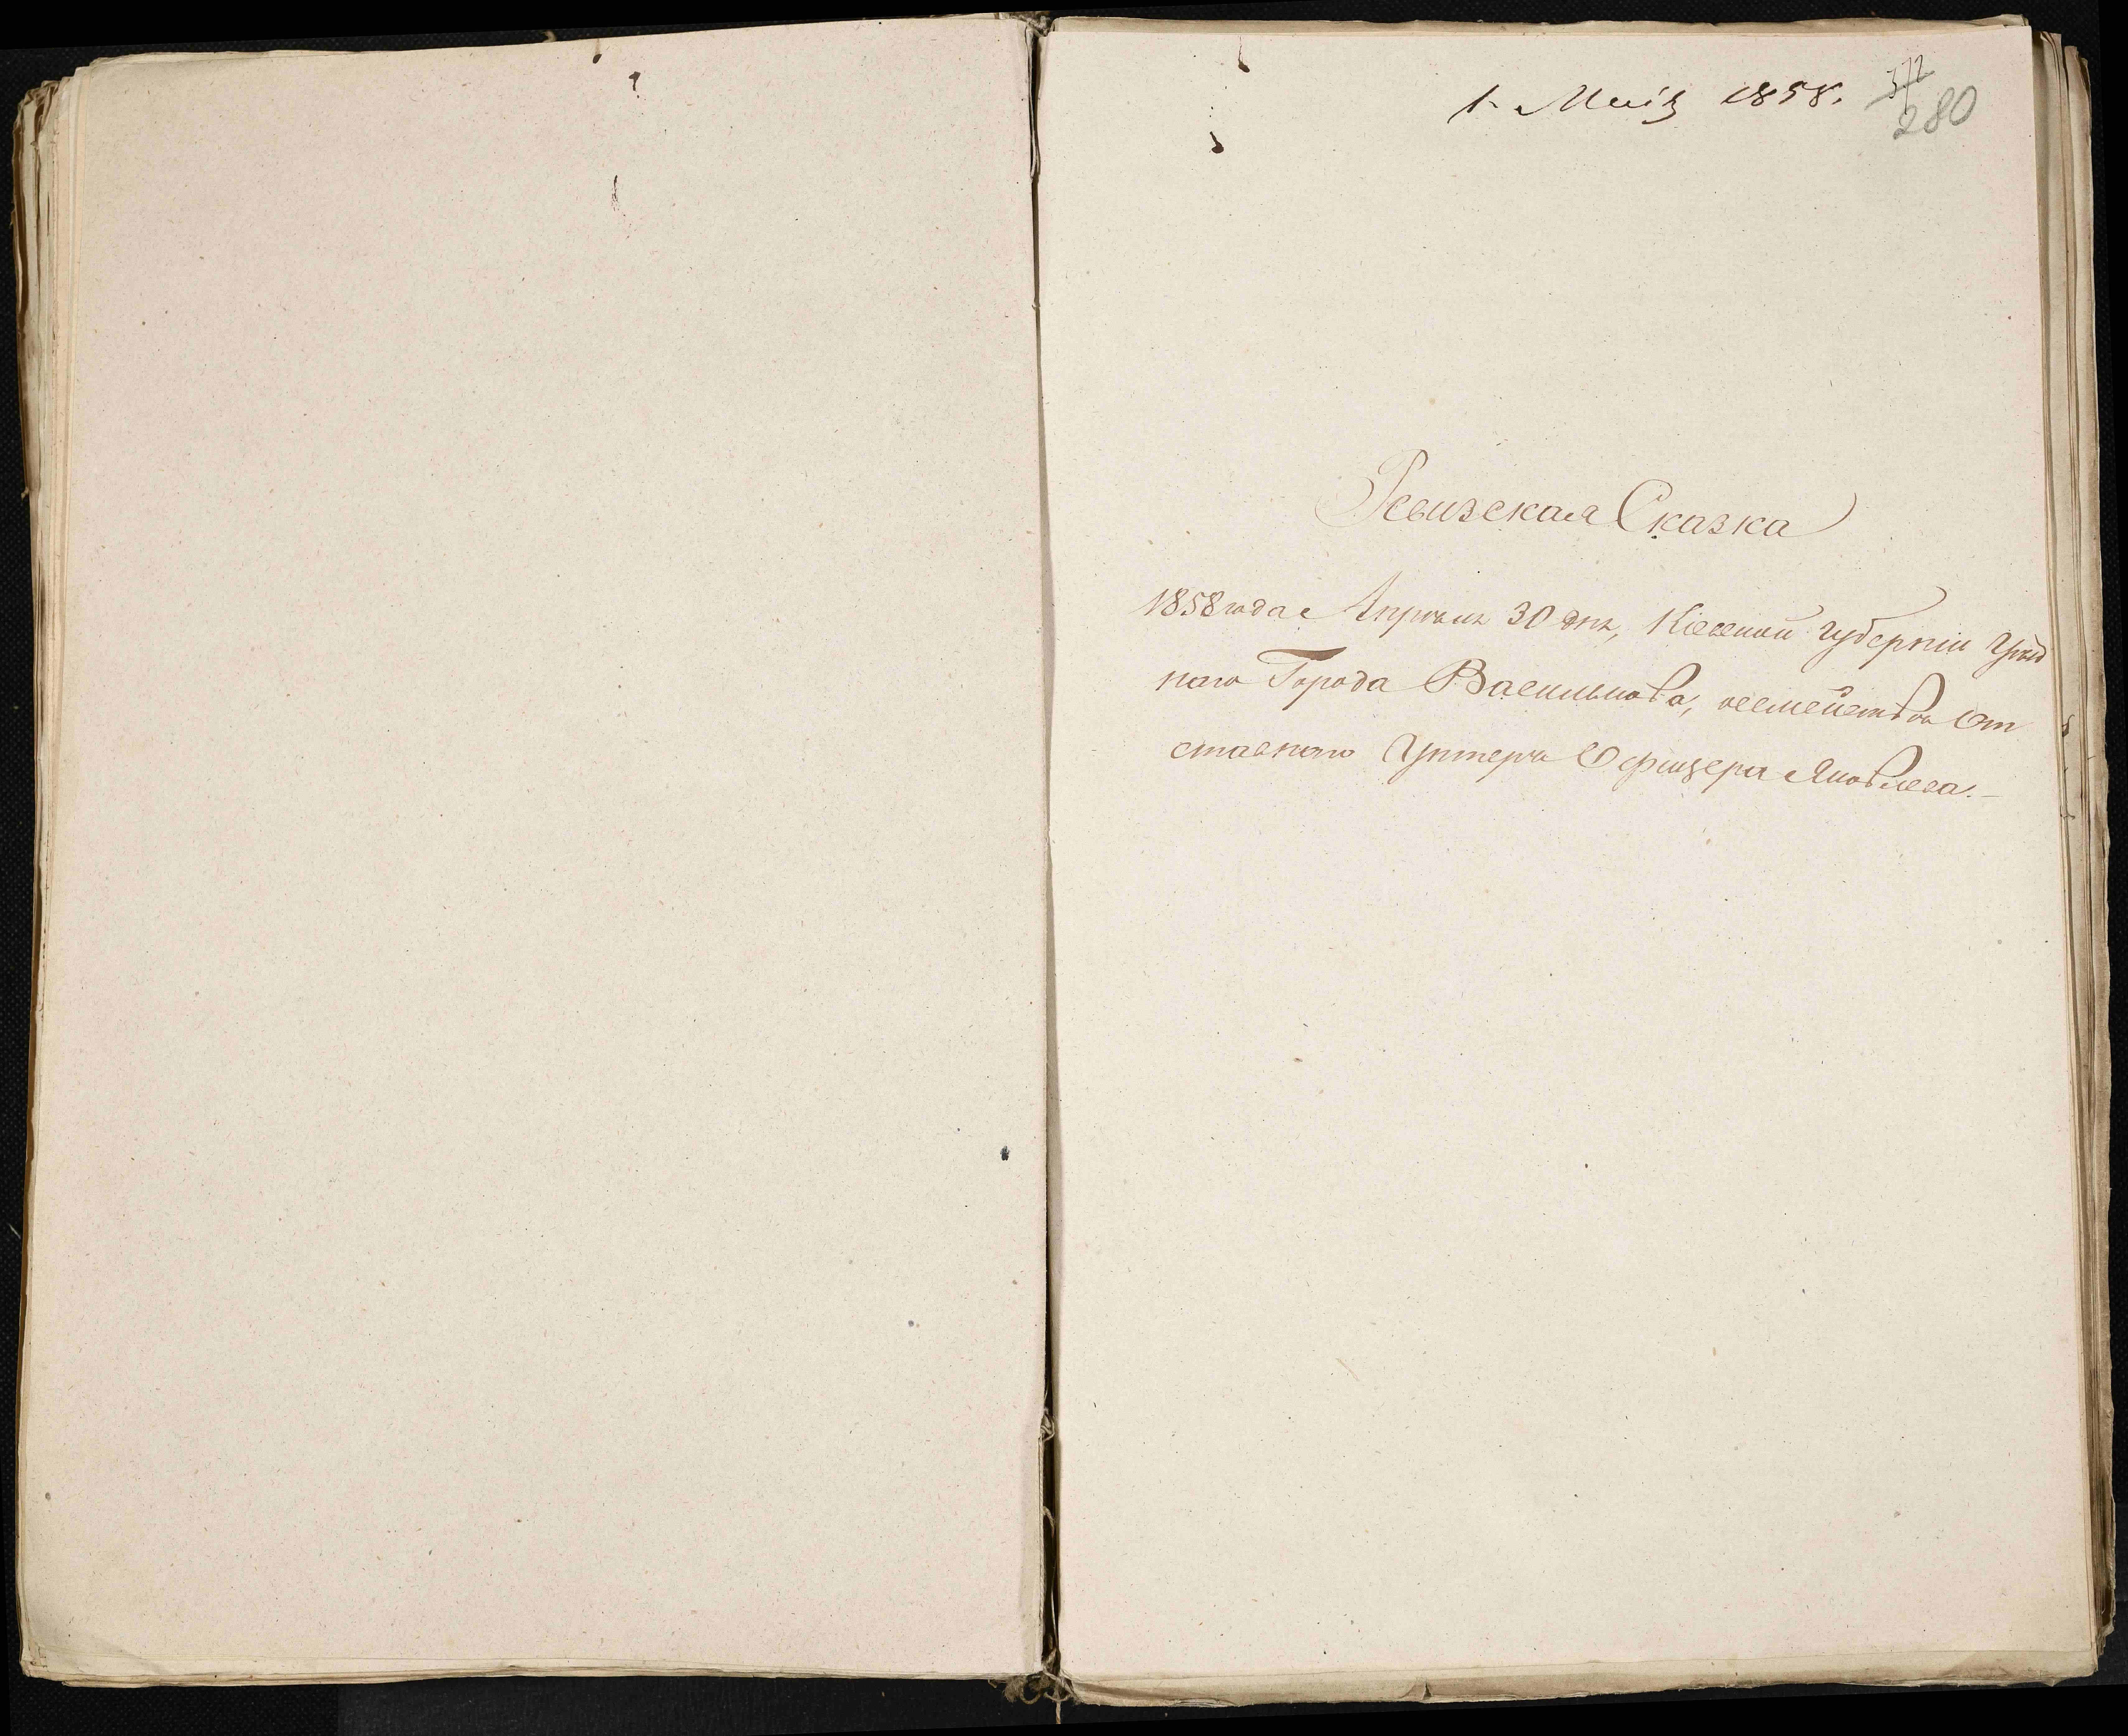 1. Маія 1858.
372
280
Ревизская Сказка
1858 года Апреля 30 дня, Кіевской Губерніи Уѣзд
наго Города Василькова, семейства От
ставнаго Унтеръ Офицера Яковлева.-